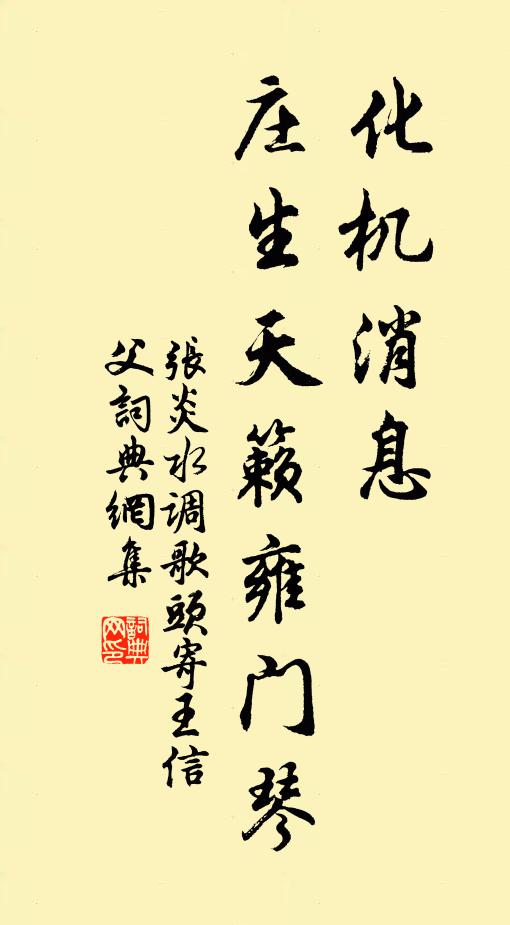 化机消息
庄生天籁雍门琴
張炎水调歌頭寄王信
父詞典網集
詞典
网印